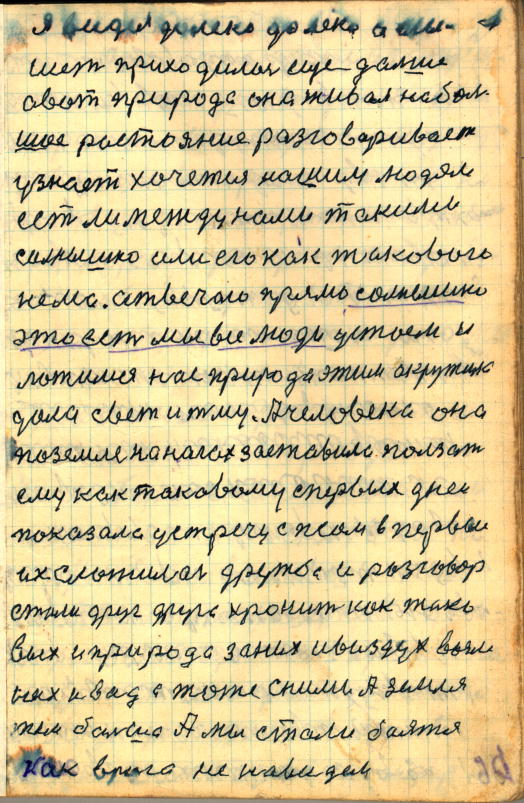 я видел долеко долеко а слы
шет приходилос еще далше
авот природа она живая набол
шое растояние разговаривает
узнает хочется нашим людям
ест ли между нами такими
сълнышко или его как такового
нема. атвечаю прямо солнышко
это ест мы все люди устаем и
ложимся нас природа этим акружик
дала свет и тму. А человека она
по земле на нагах заставила ползат
ему как таковому с первых дней
показала устречу с псом в первые
их сложилас дружба и розговор
стали друг друга хронит как тако
вых и природа за них и воздух
них и вада тоже с ними А земля
тем болше А мы стали боятся
как врага не навидем